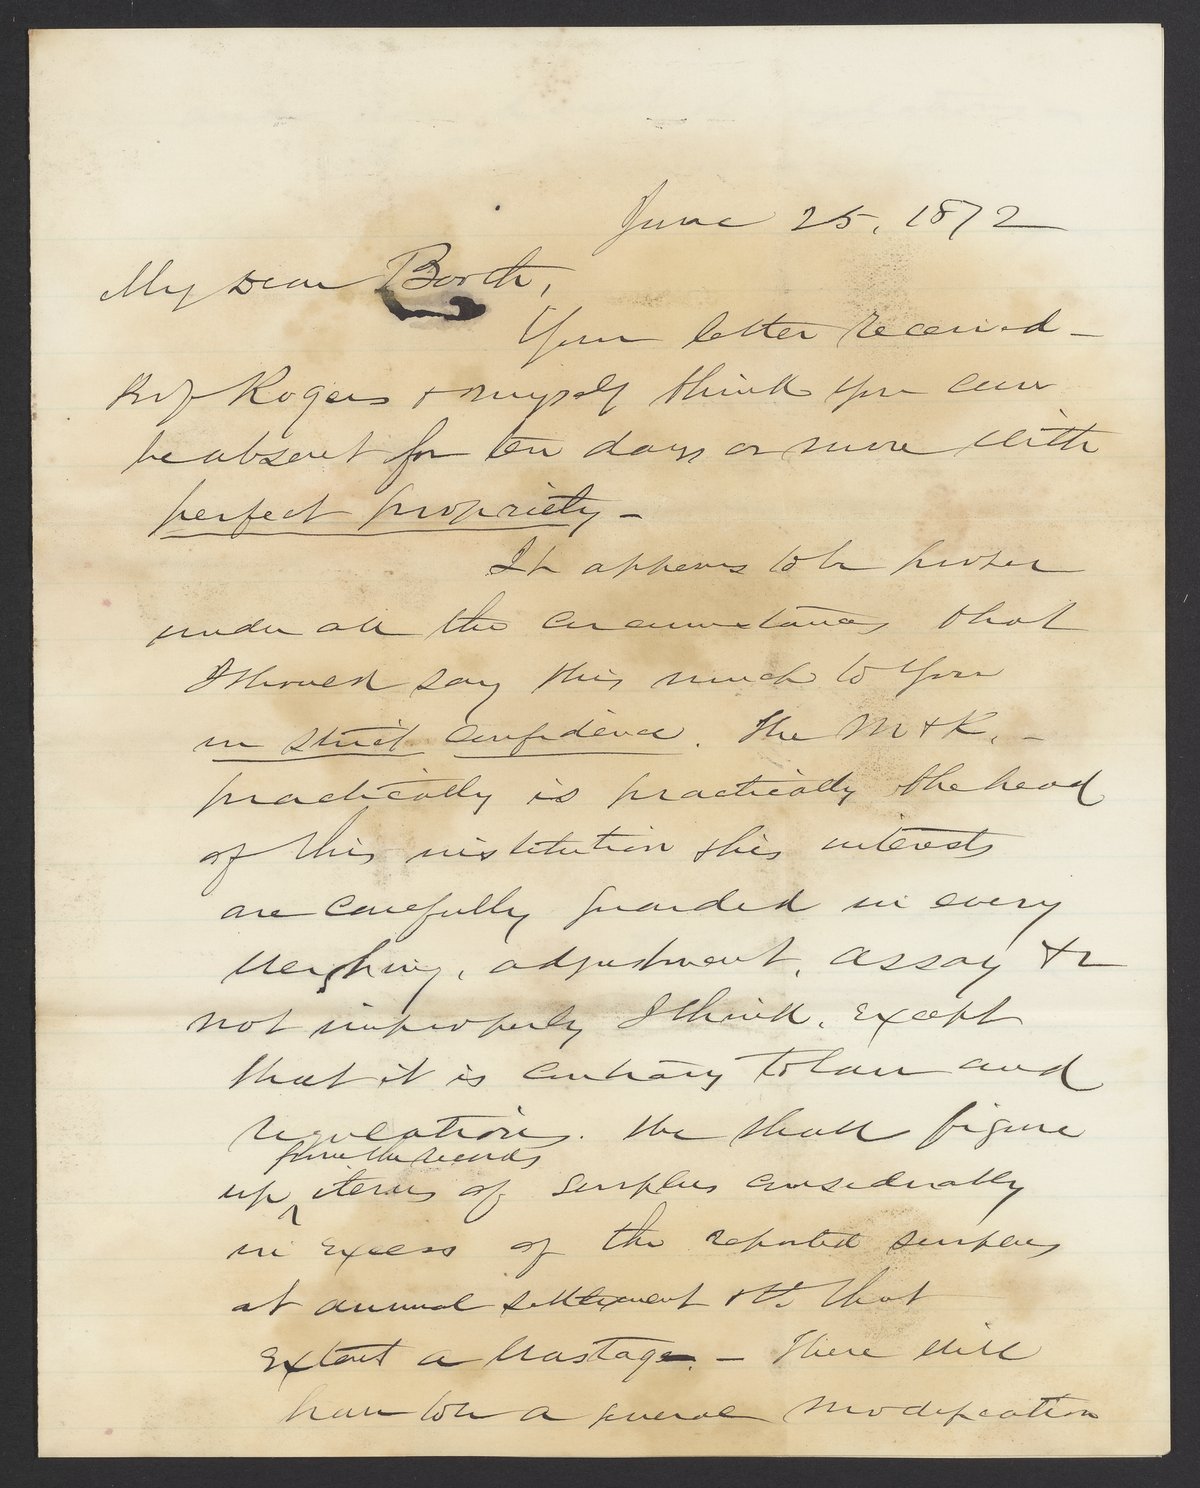 June 25, 1872
My Dear Booth,
Your letter received –
Prof Rogers & myself think you can
be absent for ten days or more with
perfect propriety –
It appears to be proper
under all the circumstances that
I should say this much to you
in strict confidence. The M & R. –
practically is practically the head
of this institution & his interests
are carefully guarded in every
weighing, adjustment, assay &c
not improperly I think, except
that it is contrary to law and
regulations. We shall figure
from the records
up ^ items of surplus considerably
in excess of the reported surplus
at annual settlement & to that
extent a wastage. – There will
have to be a general modification